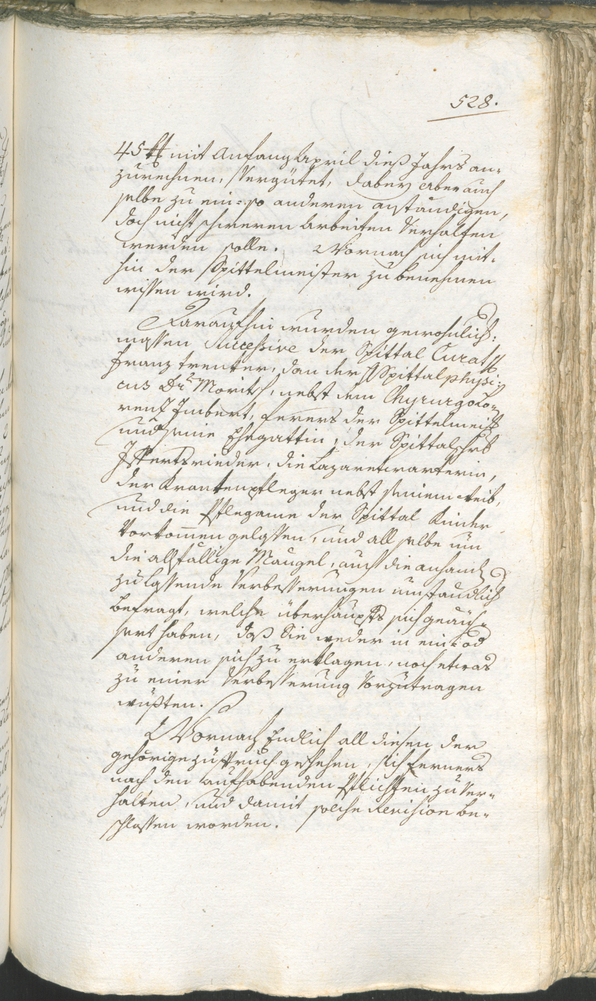 528.
45 f mit Anfang April dieß Jahrs an-
zurechnen, vergütet, dabey aber auch
selbe zu ein- so anderen anständigen,
doch nicht schweren Arbeiten verhalten
werden solle. Wornach sich mit-
hin der Spittelmeister zu benehmen
wissen wird.
Daraufhin wurden gewohnlich-
massen Successive der Spittal Curath
Franz trenter, dan der Spittalphysi-
cus Dr. Moritsch, nebst dem Chyrurgo Lo-
renz Imbert, ferers der Spittelmeister
und seine Ehegattin, der Spittalschrbr
die Lazaretwarterin,
der Krankenpfleger nebst seinem Weib,
und die Pflegame der Spittal Kinder
Vorkommen gelassen, und all selbe um
die allfällige Mängel, auch die anhand
zulassende Verbesserungen umständlich
befragt, welche überhaupts sich geäus-
sert haben, daß Sie weder in ein- od
anderen sich zu erklagen, noch etwas
zu einer Verbesserung Vorzutragen
wußten.
Wornach Endlich all diesen der
gehörige Zuspruch geschehen, sich ferners
nach den aufhabenden Pflichten zu ver-
halten, und damit solche Revision be-
schlossen worden.